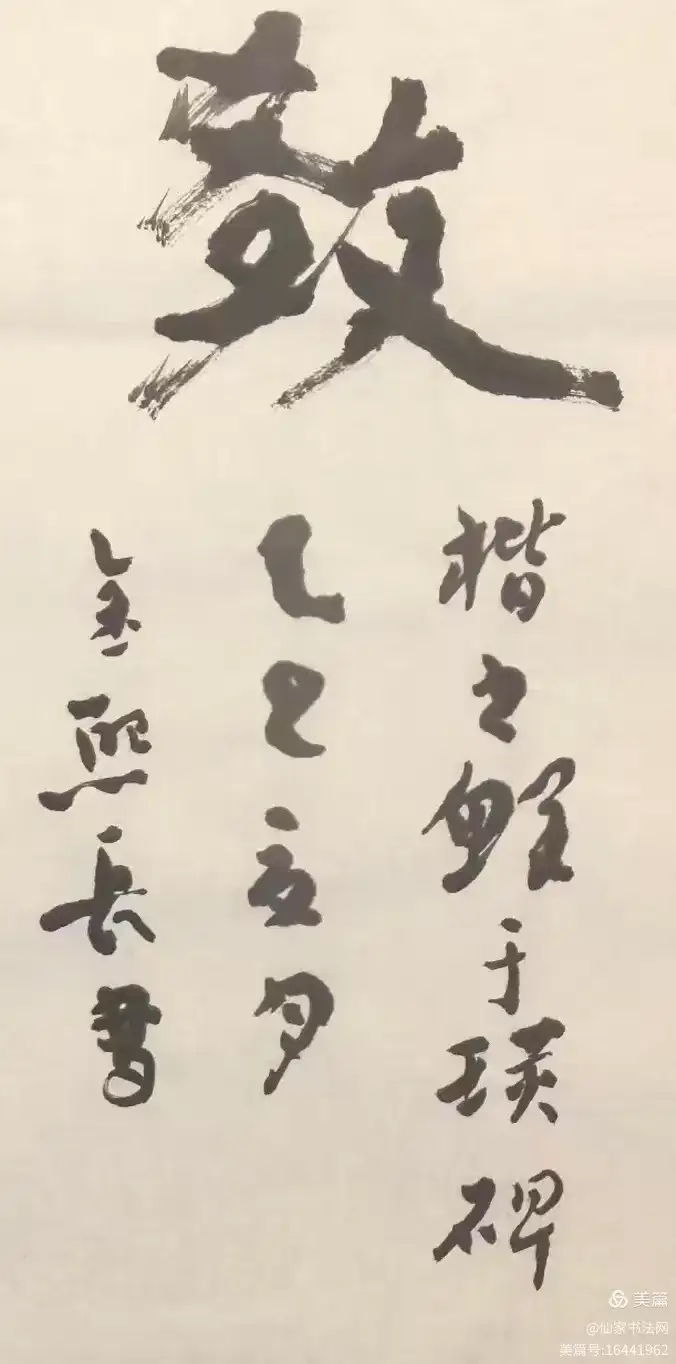 鼓
楷 鲜于璜碑
乙巳 月
金熙長書
美篇
@仙家书法网
美篇号:16441962